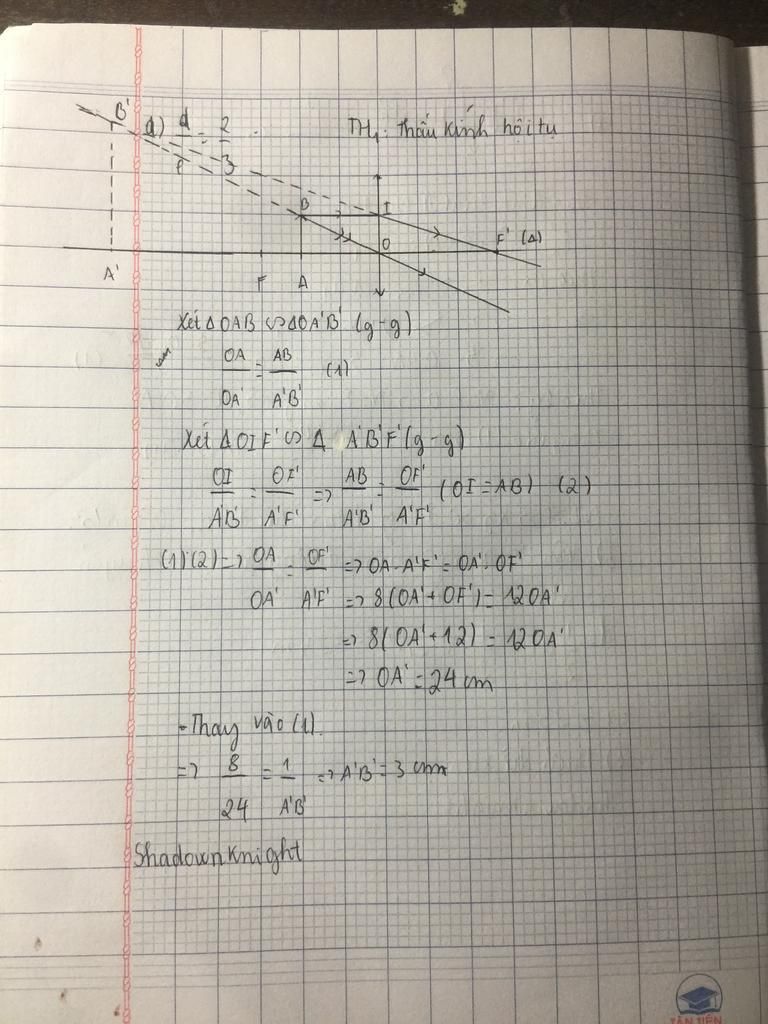 B'
d) d/f = 2/3
TH1: Thấu kính hội tụ
B I
F' (Δ)
O
A' F A
Xét ΔOAB ∽ ΔOA'B' (g-g)
OA/OA' = AB/A'B' (1)
Xét ΔOIF' ∽ Δ A'B'F' (g-g)
OI/A'B' = OF'/A'F' => AB/A'B' = OF'/A'F' (OI = AB) (2)
(1)(2) => OA/OA' = OF'/A'F' => OA.A'F' = OA'.OF'
=> 8(OA' + OF') = 12OA'
=> 8(OA' + 12) = 12OA'
=> OA' = 24 cm
- Thay vào (1).
=> 8/24 = 1/A'B' => A'B' = 3 cm
Shadownknight
TÂN TIẾN